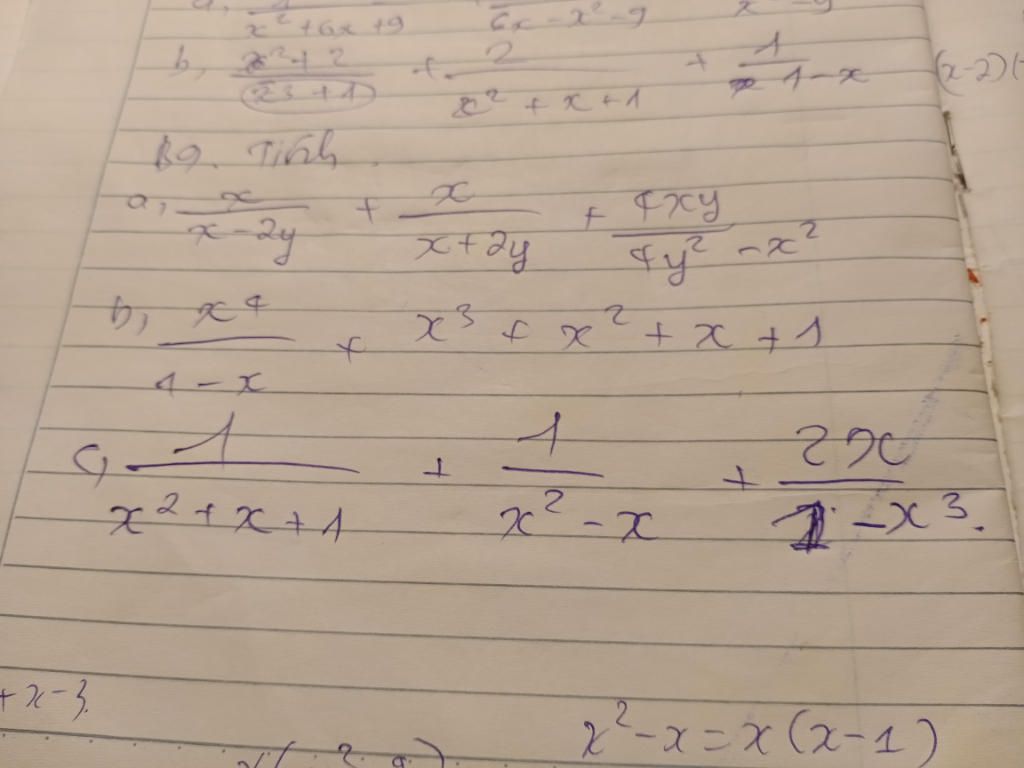 x² + 6x + 9 6x - x² - 9
b, \frac{x² + 2}{x3 + 1} + \frac{2}{x² + x + 1} + \frac{1}{1 - x} (x-2)(
B9. Tính.
a, \frac{x}{x - 2y} + \frac{x}{x + 2y} + \frac{4xy}{4y² - x²}
b, \frac{x⁴}{1 - x} + x³ + x² + x + 1
c, \frac{1}{x² + x + 1} + \frac{1}{x² - x} + \frac{2x}{1 - x³}.
+ x - 3.
x² - x = x(x - 1)